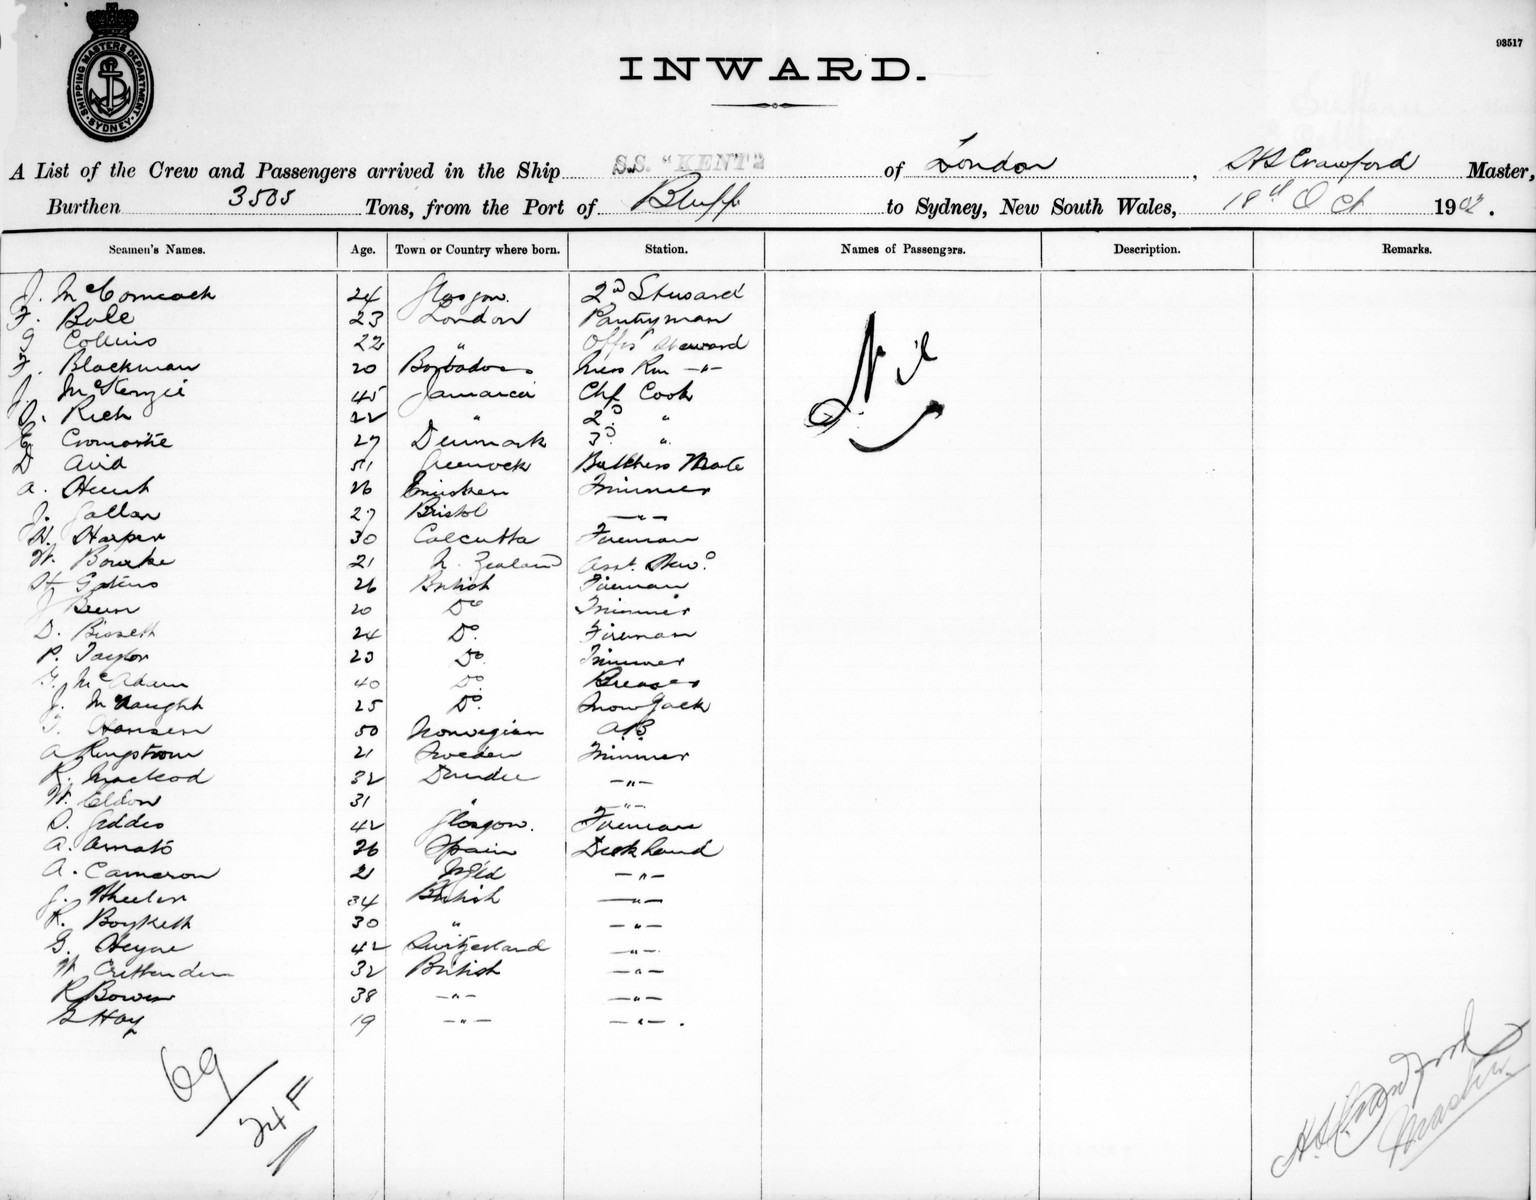 SHIPPING MASTERS DEPARTMENT
SYDNEY
93517
INWARD.
A List of the Crew and Passengers arrived in the Ship S.S. "KENT" of London, HS Crawford Master,
Burthen 3505 Tons, from the Port of Bluff to Sydney, New South Wales, 18th Oct 1902.
Seamen's Names. Age. Town or Country where born. Station. Names of Passengers. Description. Remarks.
J. McCormack 24 Glasgow. 2nd Steward
F. Bale 23 London Pantryman
G Collins 22 " Offrs Steward
F. Blackman 20 Barbados Mess Rm -"-
Nil
J. McKenzie 45 Jamaica Chf Cook
Rich 22 " 2D "
Cromartie 27 Denmark 3D "
D Avid 51 Greenock Butchers Mate
A. Hunt 26 Trimmer
J. Gallan 27 Bristol -"-
H. Harper 30 Calcutta Fireman
W. Bourke 21 N. Zealand Asst. Stewd.
26 British Fireman
J Beun 20 Do Trimmer
D. Bissett 24 Do. Fireman
P. Taylor 23 Do. Trimmer
G. McAdam 40 Do. Greaser
J. McNaught 25 Do. Snow Jack
T. Hansen 50 Norwegian A.B.
A Ringstrom 21 Sweden Trimmer
R. Macleod 32 Dundee -"-
W. Eldon 31 " -"-
D. Geddes 42 Glasgow. Fireman
A. Amato 26 Spain Deck hand
A. Cameron 21 -"-
J. Wheeler 34 British -"-
R. Boykett 30 " -"-
G. Heyne 42 Switzerland -"-
W. Crittenden 32 British -"-
R Bowen 38 -"- -"-
G Hay 19 -"- -"-.
69/
24 F
H.S. Crawford
Master